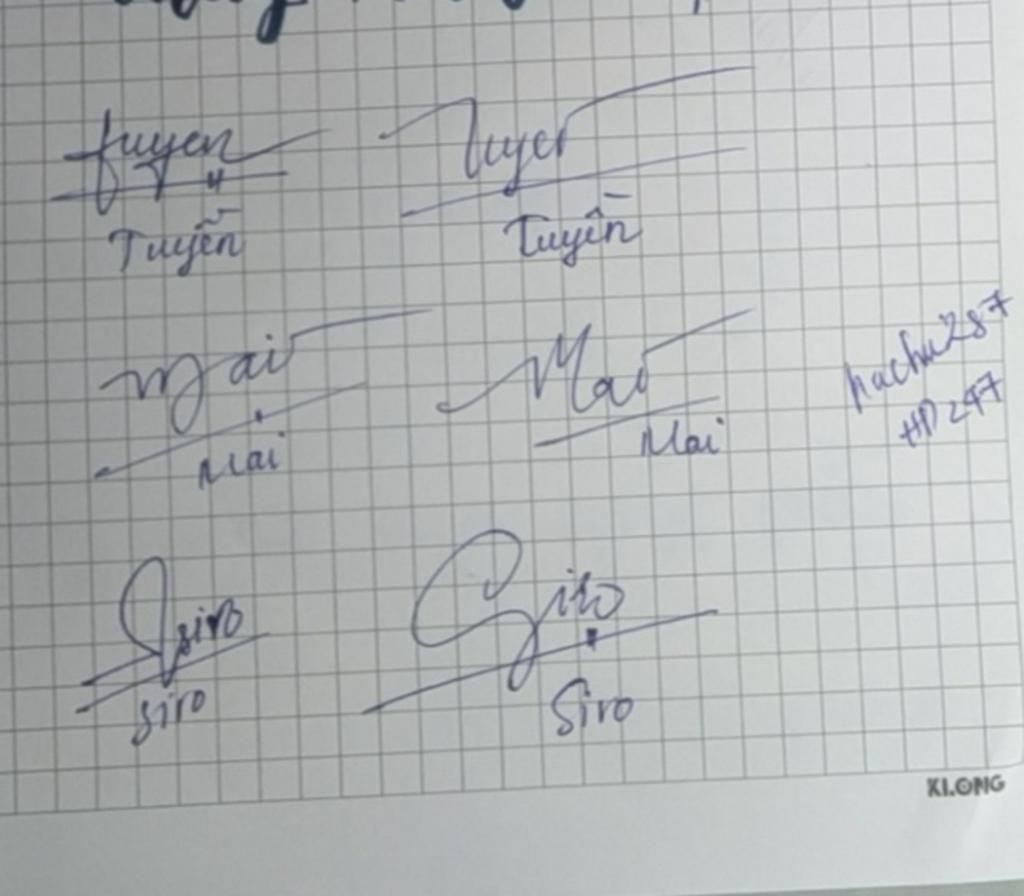 Tuyen Tuyen
Tuyễn Tuyền
Mai Mai
Mai Mai
hachu287
HD247
Siro Siro
Siro Siro
KLONG